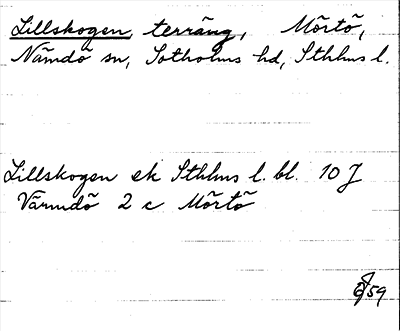 Lillskogen, terräng, Mörtö,
Nämdö sn, Sotholms hd, Sthlms l.
Lillskogen ek Sthlms l. bl. 10 J
Värmdö 2 c Mörtö
59